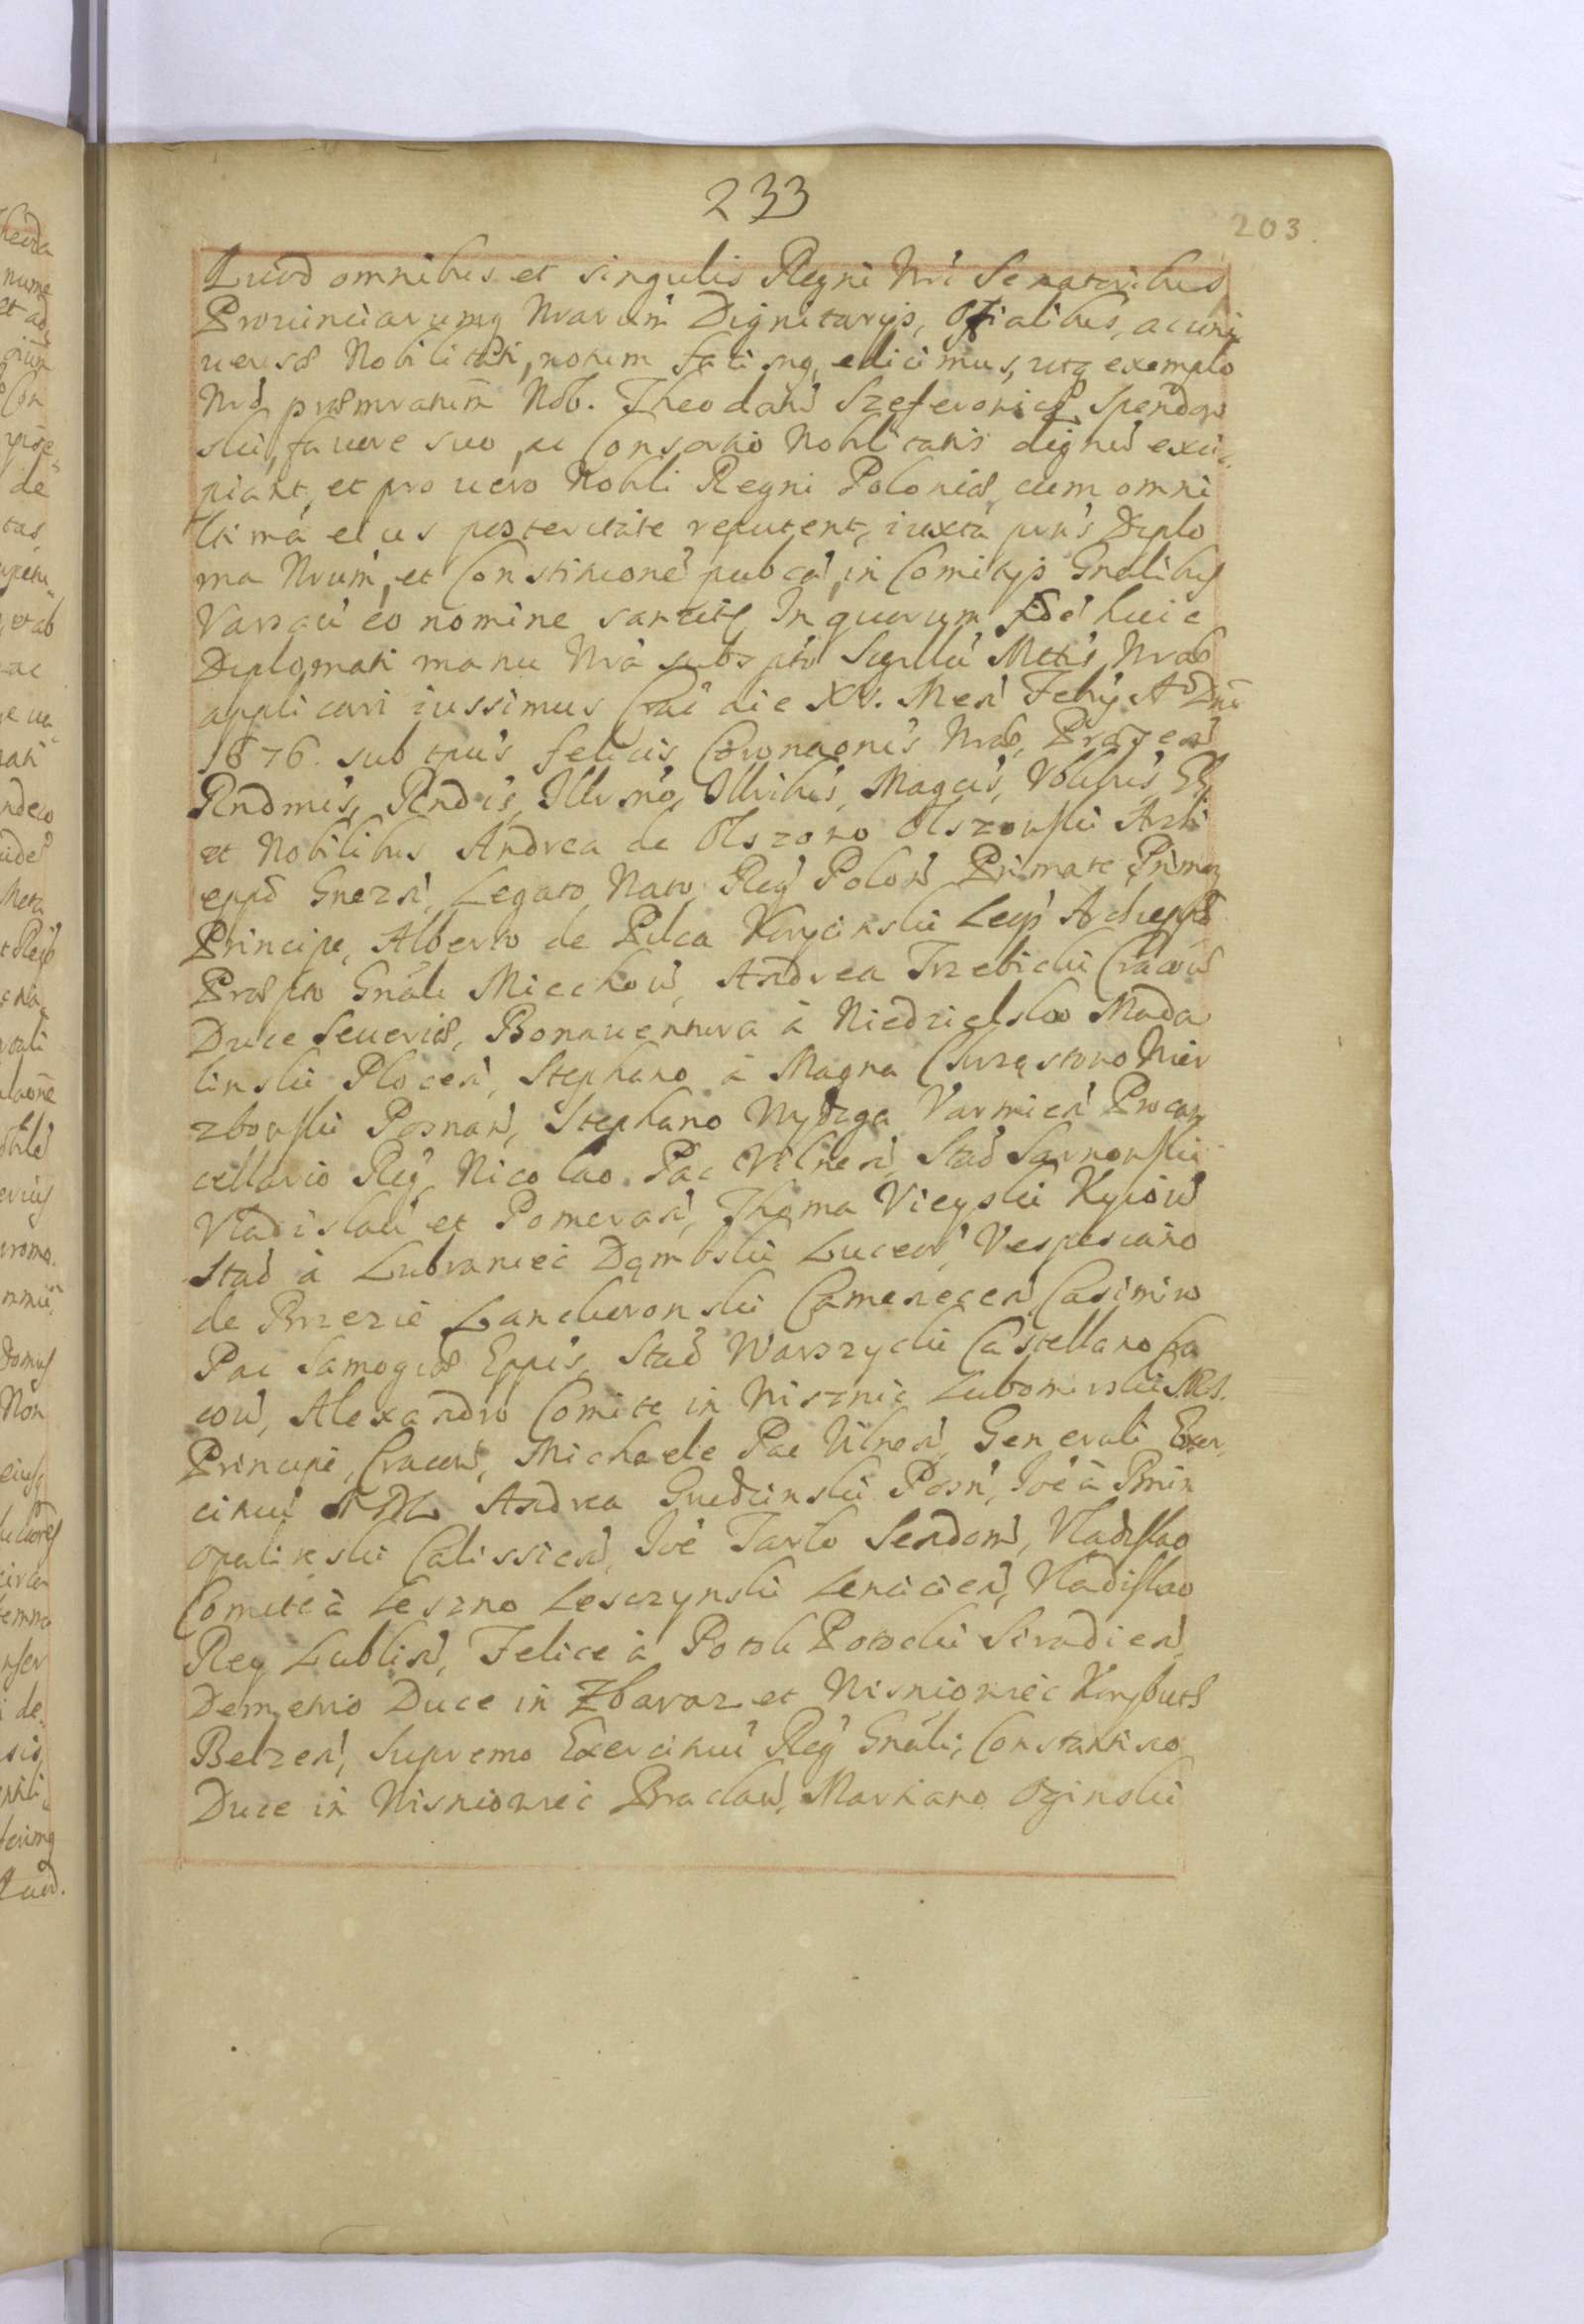 233
203.
Quod omnibus et singulis Regni Nri Senatoribus
Prouinciarumq Nrarum Dignitarijs, Offialibus, ac uni
uersæ Nobilitati, notum facimq, edicimus, utq exemplo
Nro præmratum Nob. Theodorū Szeferowicz Spendow
ski, fauore suo, ac Consortio Nobilitatis dignū exci„
piant, et pro uero Nobili Regni Poloniæ, cum omni
ltimá eius posteritate reputent, iuxta prns Diplo
ma Nrum, et Constitucionē pubcā, in Comitijs Gnalibus
Varsau eo nomine sancitq In quorum fidē huic
Diplomati manu Nrá subs pto Sigillū Mttis Nræ
applicari iussimus Crac die XV. Mens Febrij Aº Dni
1676. sub tpus felicis Coronaonis Nræ, Præsen
Rndmis, Rndis, Illusmo, Illribus, Magcis, Vblibus, G
et Nobilibus Andrea de Olszowo Olszowski Archi
eppo Gnezn, Legato Nato, Reg Polon Primate Primoq
Principe, Alberto de Pilca Korycinski Leop Archieppo
Præpto Gnäli Miechow, Andrea Trzebicki Cracow
Duce Seueriæ, Bonauentura à Niedzielsko Mada
linski Plocen, Stephano à Magna Chrząstowo Wier
zbowski Posnan, Stephano Wydzga Varmien Procan
cellario Reg Nicolao Pac Vilnen, Stað Sarnowski
Vladislau et Pomeran, Thoma Vieyski Kyiow
Stað à Lubraniec Dąmbski Luceor, Vespesiano
de Brzezie Lanckoronski Camenecen Casimiro
Pac Samogiæ Eppis, Stað Warszycki Castellano Cra
cow, Alexandro Comite in Wisnic Lubomirski S.R.I.
Principe, Cracow, Michaele Pac Vilnen, Generali Exer„
cituū M.D.L. Andrea Grudzinski Posn, Joē à Bnin
Opalinski Calissien, Joē Tarlo Sendom, Vladislao
Comite à Leszno Lesczynski Lencicien, Vladislao
Rey Lublin, Felice à Potok Potocki Siradien,
Demetrio Duce in Zbaraz et Wisniowiec Korybuth
Belzen, Supremo Exercituū Reg Gnäli, Constantino
Duce in Wisniowiec Braclau, Martiano Oginski